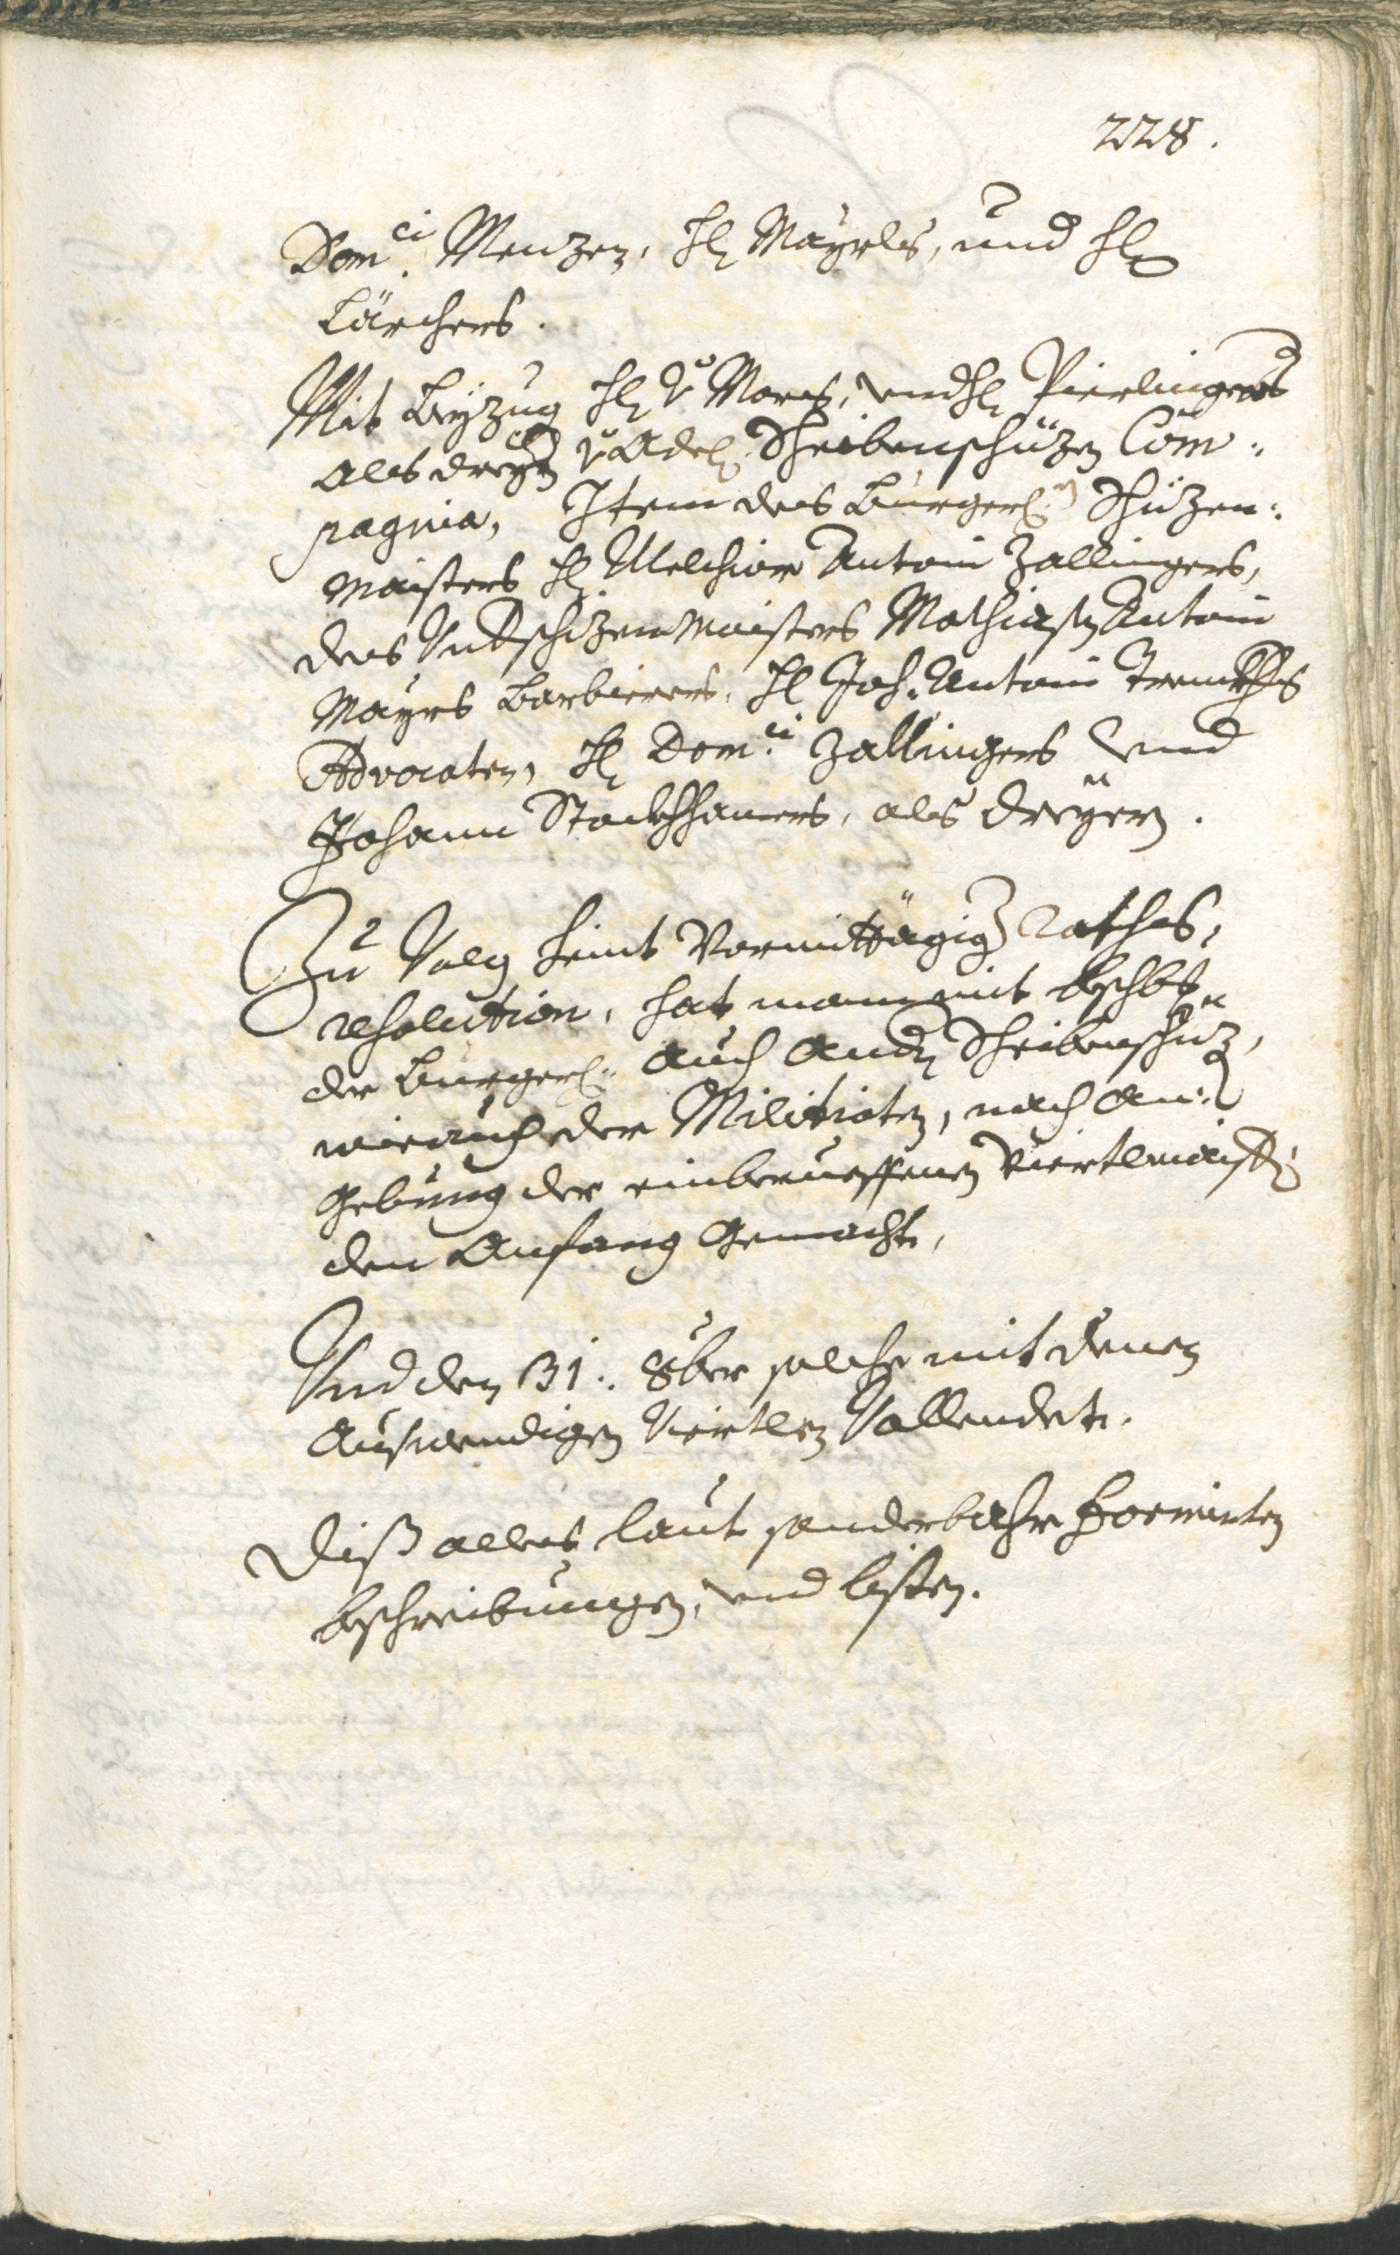 228.
Dom.ci Menzen, H: Mayrls, und H:
Lärchers.
Mit Beyzug H: v Mores, und H: Pierlingers
als dreyer v: Adel: Scheibenschüzen Com:
pagnia, Item des Burgerl:n Schüzen:
maisters H: Melchior Antoni Zallingers,
des Undschüzenmaisters Mathiaß Antoni
Mayrs Barbierers, H: Joh: Antoni
Advocaten, H: Dom:ci Zallingers und
Johann Stockhamers, als dreyern.
Zu Volg heint Vormittägig Raths,
resolution, hat man mit bschbg
der Burgerl: auch andr Scheibenschüz,
wie auch der Militioten, nach An:
gebung der einberueffenen Viertlmaistr
den Anfang gemacht,
Und den 31: 8ber solche mit denen
Auswendigen Viertlen Vollendet.
Diß alles laut sonderbahr formirten
bschreibungen, und listen.